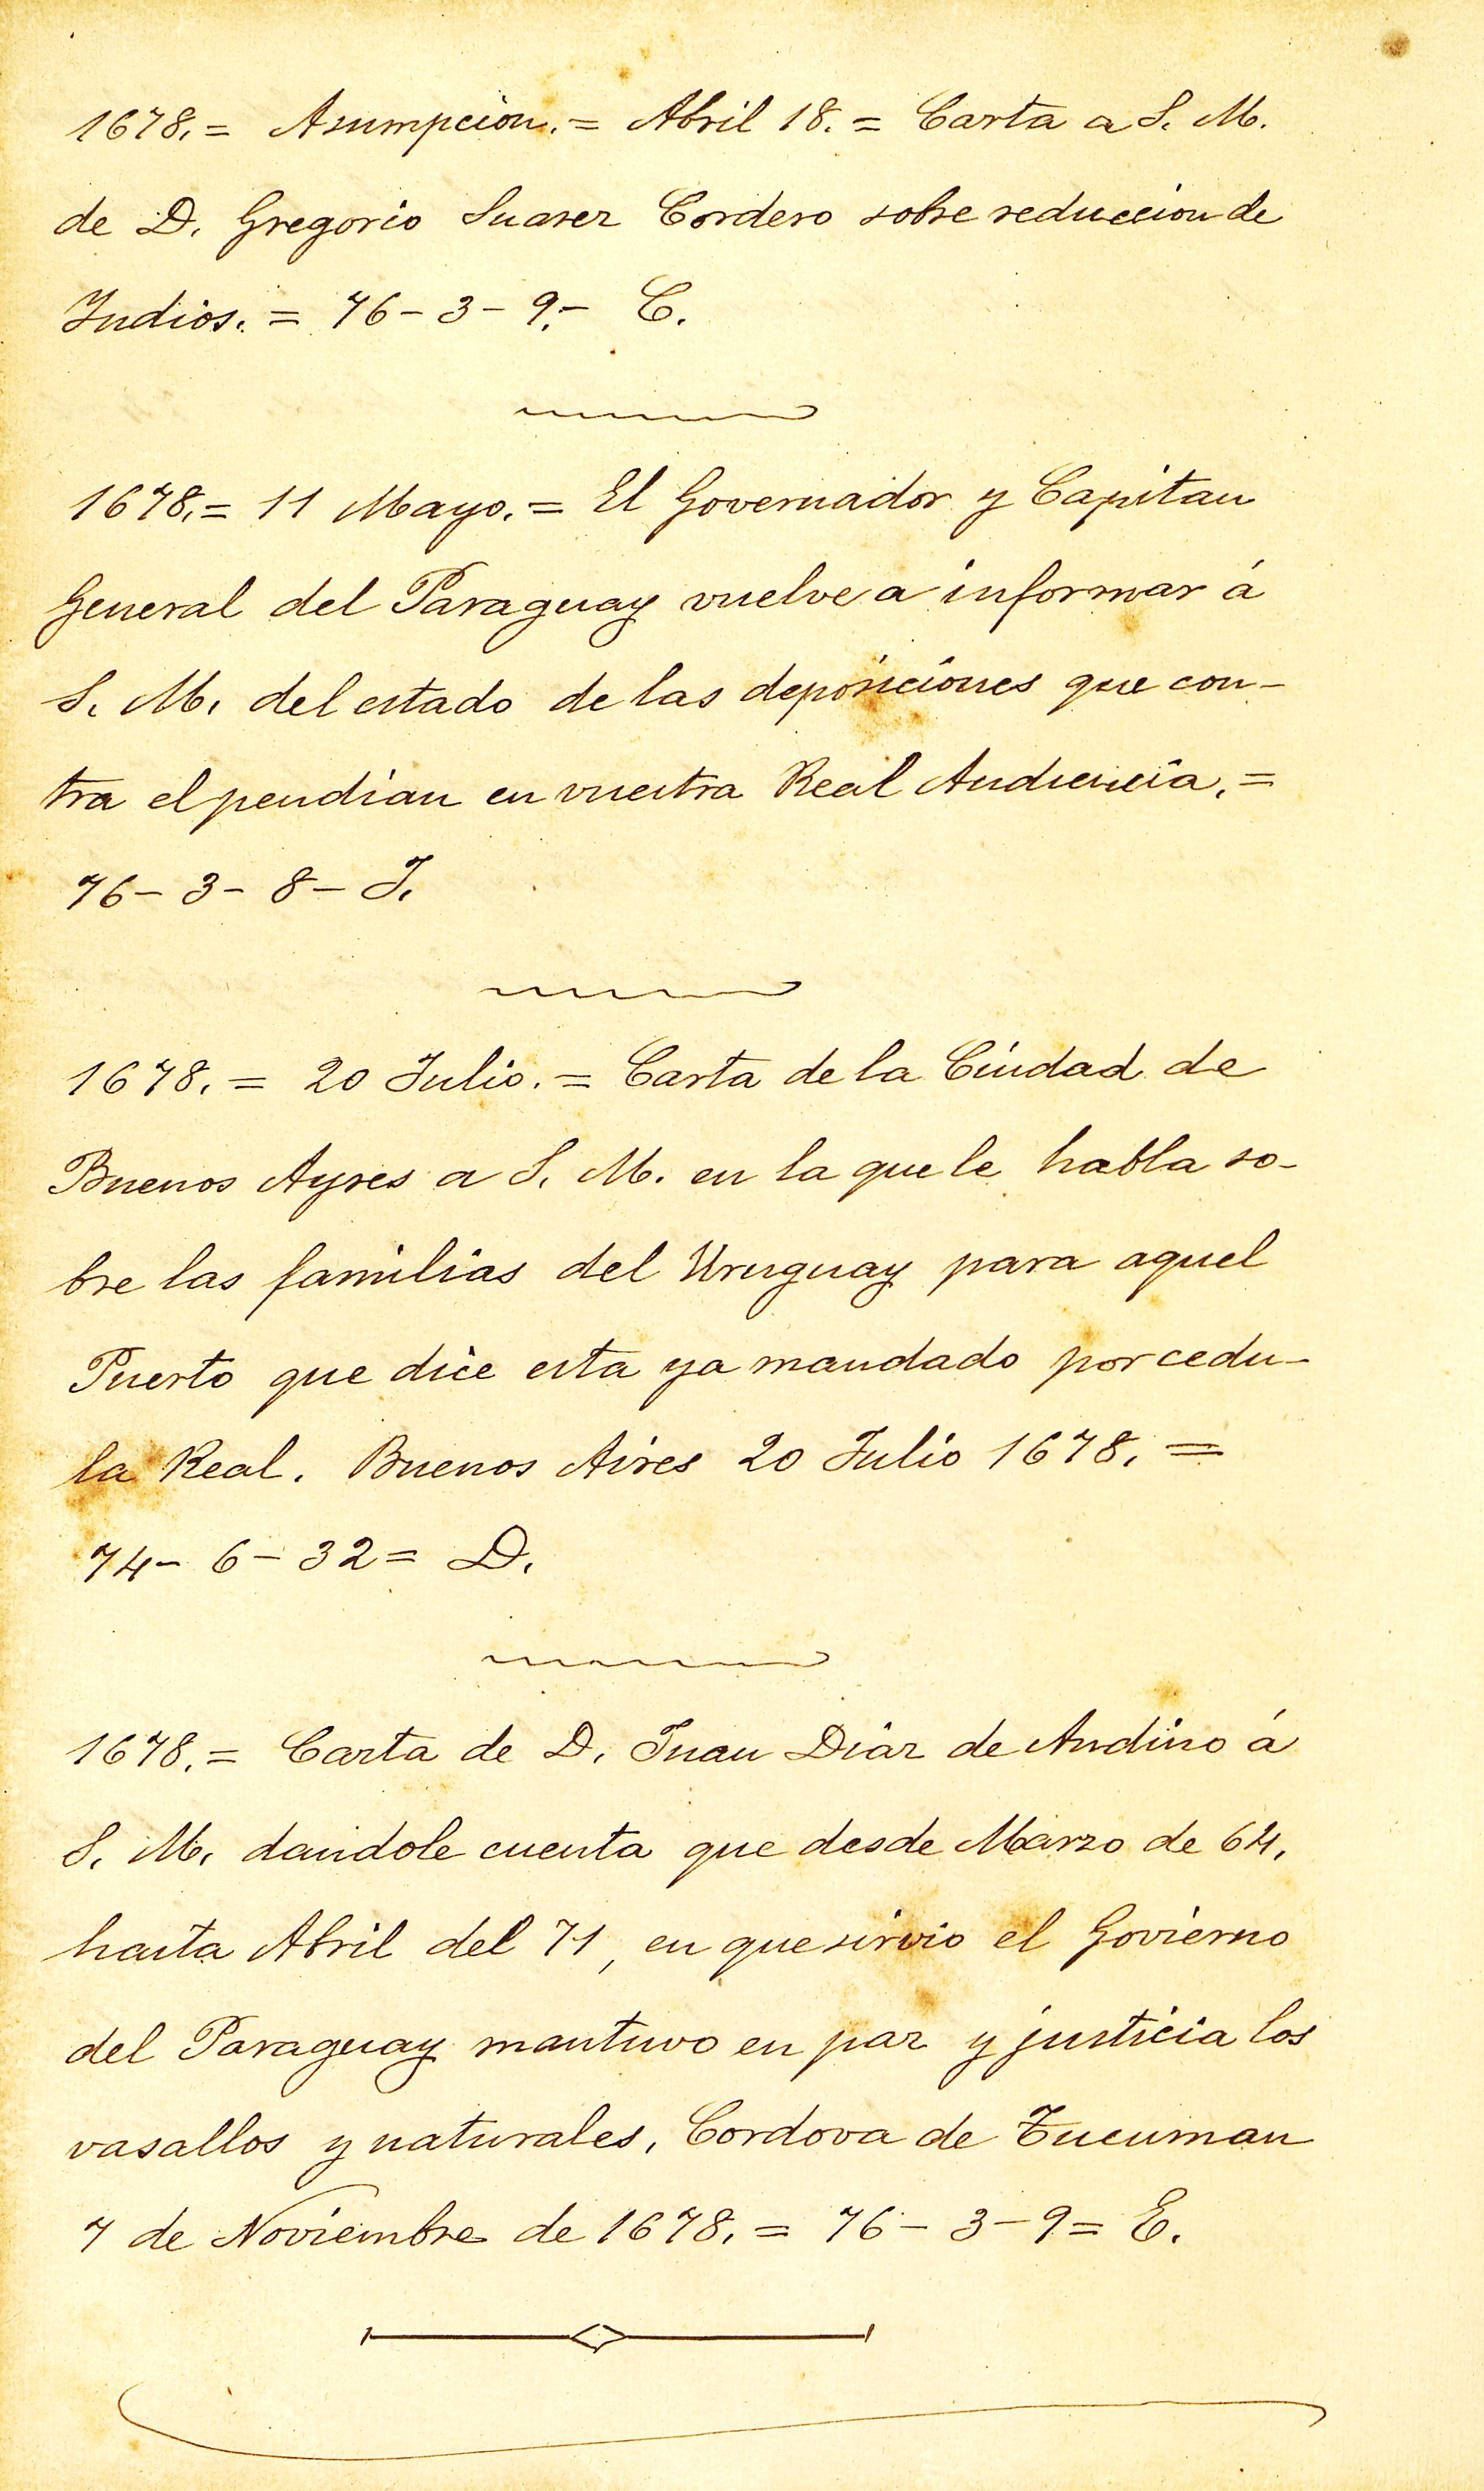 1678. = Asumpcion. = Abril 18. = Carta a S. M.
de D. Gregorio Suarez Cordero sobre reduccion de
Indios. = 76 - 3 - 9. - C.
1678. = 11 Mayo. = El Governador y Capitan
General del Paraguay vuelve a informar á
S. M. del estado de las deposiciones que con-
tra el pendian en vuestra Real Audiencia. =
76 - 3 - 8 - I.
1678. = 20 Julio. = Carta de la Ciudad de
Buenos Ayres a S. M. en la que le habla so-
bre las familias del Uruguay para aquel
Puerto que dice esta ya mandado por cedu-
la Real. Buenos Aires 20 Julio 1678. =
74 - 6 - 32 = D.
1678. = Carta de D. Juan Diaz de Andino á
S. M. dandole cuenta que desde Marzo de 64,
hasta Abril del 71, en que sirvio el Govierno
del Paraguay mantuvo en paz y justicia los
vasallos y naturales. Cordova de Tucuman
7 de Noviembre de 1678. = 76 - 3 - 9 = E.